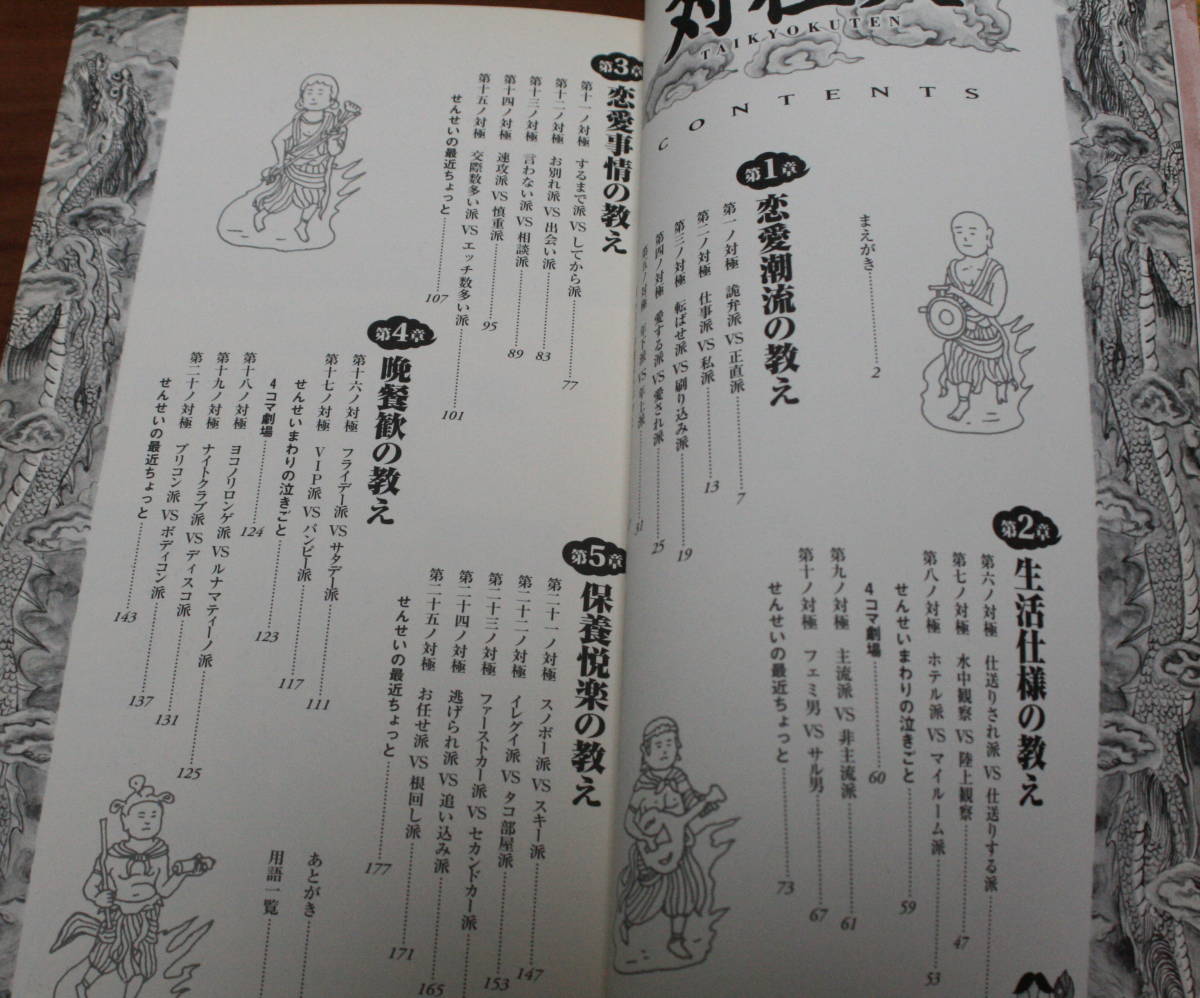 TAIKYOKUTEN
CONTENTS
まえがき………2
第1章 恋愛潮流の教え
第一ノ対極 詭弁派 VS 正直派………7
第二ノ対極 仕事派 VS 私派………13
第三ノ対極 転ばせ派 VS 刷り込み派………19
第四ノ対極 愛する派 VS 愛され派………25
第五ノ対極 年下派 VS 年上派………31
第2章 生活仕様の教え
第六ノ対極 仕送りされ派 VS 仕送りする派
第七ノ対極 水中観察 VS 陸上観察………47
第八ノ対極 ホテル派 VS マイルーム派………53
せんせいまわりの泣きごと………59
4コマ劇場………60
第九ノ対極 主流派 VS 非主流派………61
第十ノ対極 フェミ男 VS サル男………67
せんせいの最近ちょっと………73
第3章 恋愛事情の教え
第十一ノ対極 するまで派 VS してから派………77
第十二ノ対極 お別れ派 VS 出会い派………83
第十三ノ対極 言わない派 VS 相談派………89
第十四ノ対極 速攻派 VS 慎重派………95
第十五ノ対極 交際数多い派 VS エッチ数多い派………101
せんせいの最近ちょっと………107
第4章 晩餐歓の教え
第十六ノ対極 フライデー派 VS サタデー派………111
第十七ノ対極 VIP派 VS バンピー派………117
せんせいまわりの泣きごと………123
4コマ劇場………124
第十八ノ対極 ヨコノリロンゲ派 VS ルナマティーノ派………125
第十九ノ対極 ナイトクラブ派 VS ディスコ派………131
第二十ノ対極 ブリコン派 VS ボディコン派………137
せんせいの最近ちょっと………143
第5章 保養悦楽の教え
第二十一ノ対極 スノボー派 VS スキー派………147
第二十二ノ対極 イレグイ派 VS タコ部屋派………153
第二十三ノ対極 ファーストカー派 VS セカンドカー派
第二十四ノ対極 逃げられ派 VS 追い込み派………165
第二十五ノ対極 お任せ派 VS 根回し派………171
せんせいの最近ちょっと………177
あとがき………
用語一覧………